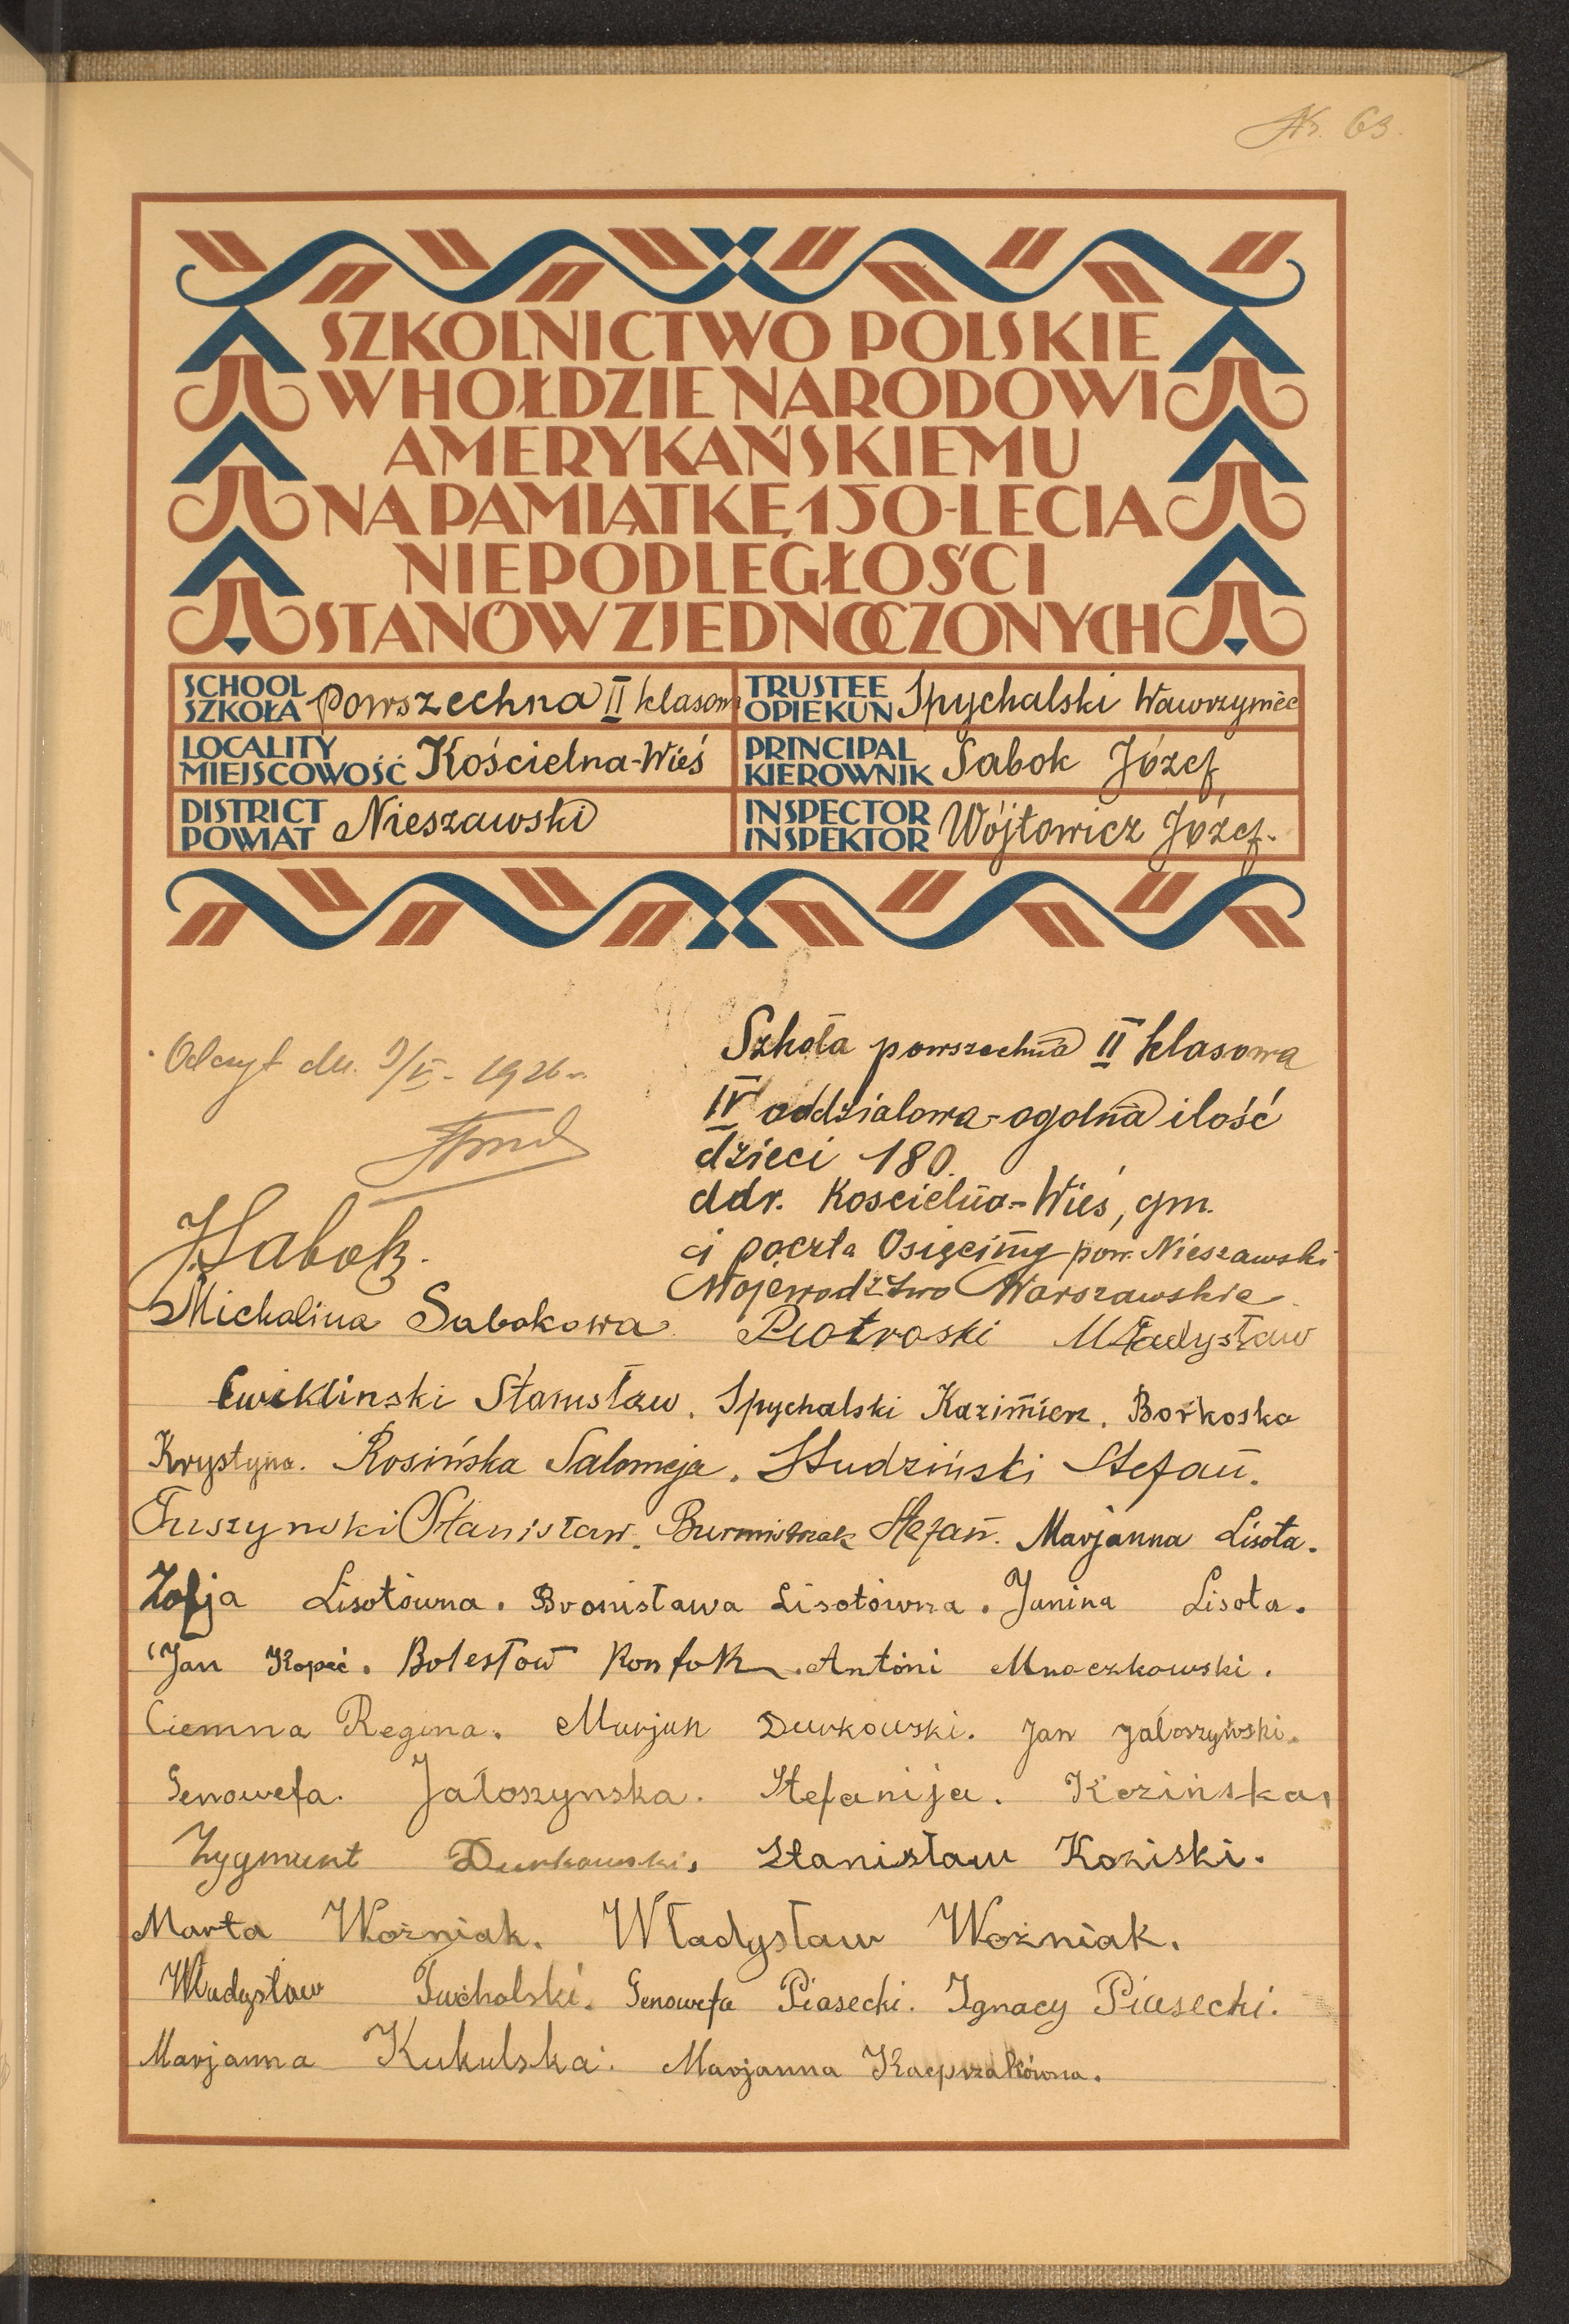 Nr. 63.
SZKOLNICTWO POLSKIE
W HOŁDZIE NARODOWI
AMERYKAŃSKIEMU
NA PAMIĄTKĘ 150-LECIA
NIEPODLEGŁOŚCI
STANÓW ZJEDNOCZONYCH
SCHOOL
SZKOŁA powszechna II klasowa
TRUSTEE
OPIEKUN Spychalski Wawrzyniec
LOCALITY
MIEJSCOWOŚĆ Kościelna-Wieś
PRINCIPAL
KIEROWNIK Sabok Józef
DISTRICT
POWIAT Nieszawski
INSPECTOR
INSPEKTOR Wójtowicz Józef.
Odczyt dn. 9/V - 1926 r.
Szkoła powszechna II klasowa
IV oddziałowa - ogolna ilość
dzieci 180.
Adr. Koscielna-Wieś, gm.
i poczta Osięciny pow. Nieszawski
Województwo Warszawskie.
J. Sabok.
Michalina Sabokowa Piotroski Władysław
Cwiklinski Stanisław. Spychalski Kazimierz. Borkoska
Krystyna. Rosińska Salomeja. Studziński Stefan.
Tuszynski Stanisław. Burmistrzak Stefan. Marjanna Lisota.
Zofja Lisotówna. Bronisława Lisotówna. Janina Lisota.
Jan Kopeć. Bolesław Antoni Mroczkowski.
Ciemna Regina. Marjan Durkowski. Jan Jałoszyński.
Genowefa. Jałoszynska. Stefanija. Kozińska,
Zygmunt Durkowski, Stanisław Koziski.
Marta Wozniak. Władysław Wozniak.
Władysław Tucholski. Genowefa Piasecki. Ignacy Piasecki.
Marjanna Kukulska. Marjanna Kacprzakówna.